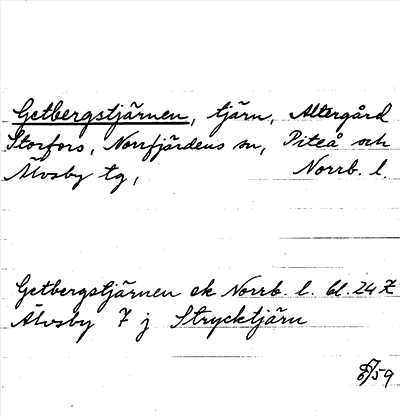 Getbergstjärnen, tjärn, Altergård
Storfors, Norrfjärdens sn, Piteå och
Älvsby tg, Norrb. l.
Getbergstjärnen ek Norrb. l. bl. 24 Z
Älvsby 7 j Strycktjärn
/59